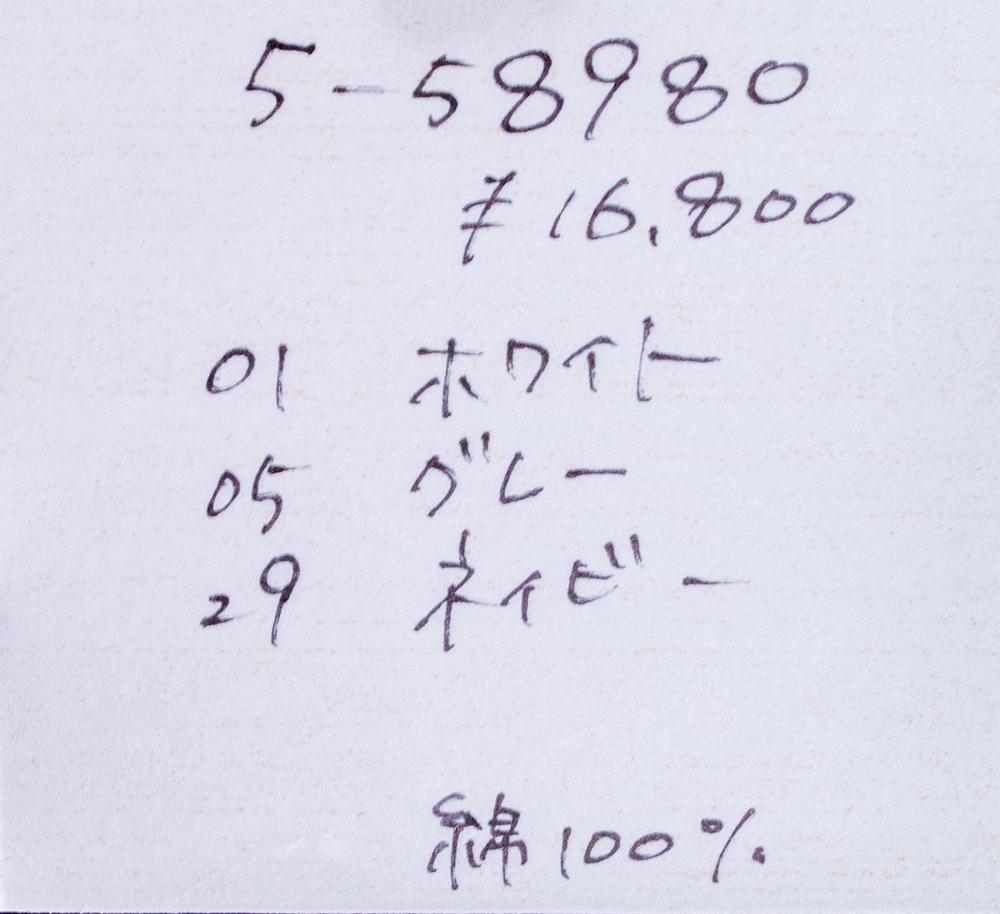 5-58980
¥16,800
01 ホワイト
05 グレー
29 ネイビー
綿100%